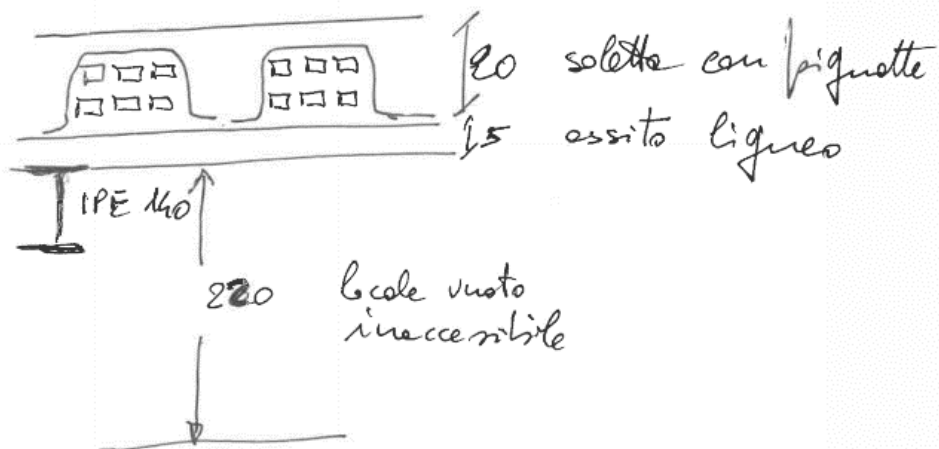 20 soletta con pignatte
15 assito ligneo
IPE 140
220 locale vuoto
inaccessibile